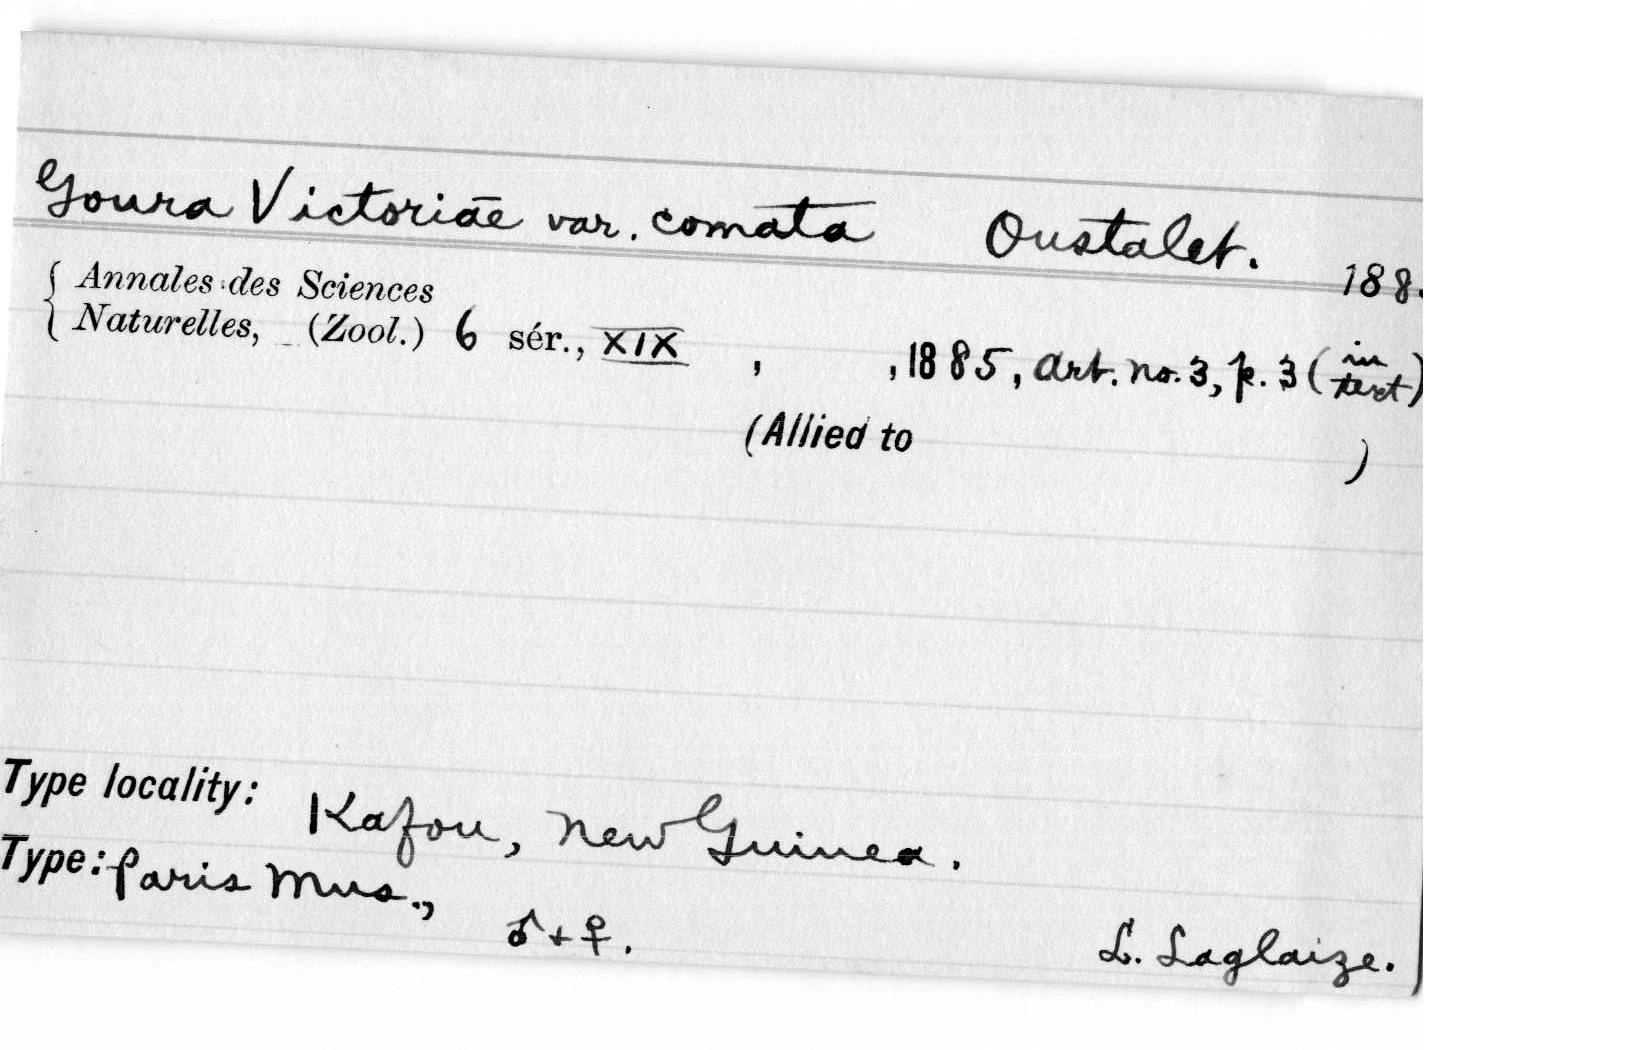 Goura Victoriae var. comata Oustalet. 188
{ Annales des Sciences
Naturelles, (Zool.) 6 sér., XIX , , 1885, art. no. 3, p. 3 (in text)
(Allied to )
Type locality: Kafou, New Guinea.
Type: Paris Mus.,
♂ + ♀. L. Laglaize.